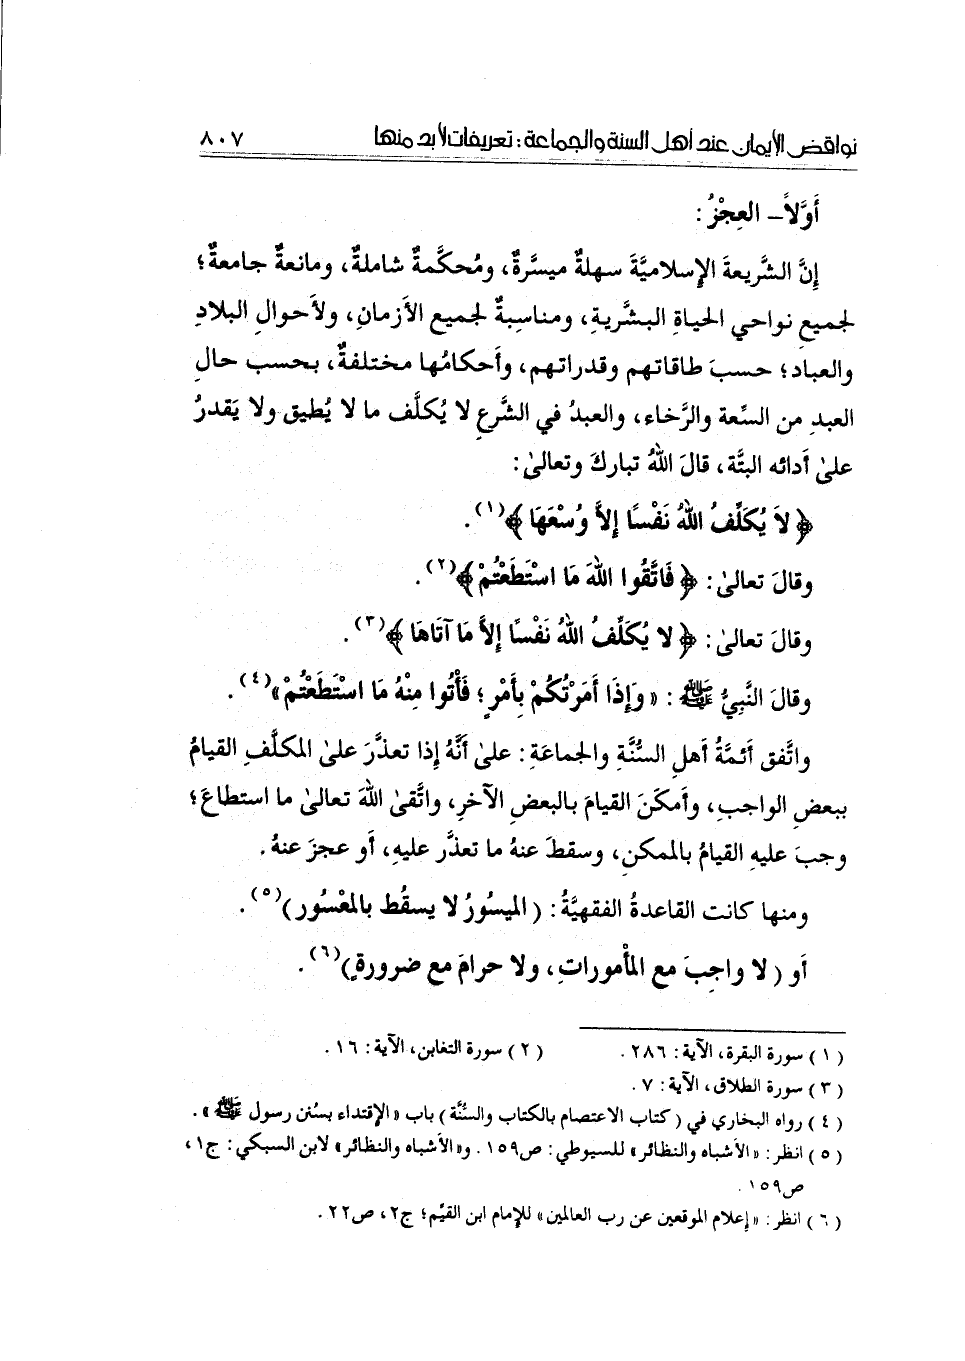 نواقض الإيمان عند أهل السنة والجماعة : تعريفات لابد منها ٨٠٧
أَوَّلاً – العِجْزُ :
إِنَّ الشَّريعةَ الإِسلاميَّةَ سهلةٌ ميسَّرةٌ، ومُحكَّمةٌ شاملةٌ، ومانعةٌ جامعةٌ؛
لجميعِ نواحي الحياةِ البشَّريةِ، ومناسبةٌ لجميعِ الأَزمانِ، ولأَحوالِ البلادِ
والعبادِ؛ حسبَ طاقاتهم وقدراتهم، وأَحكامُها مختلفةٌ، بحسب حالِ
العبدِ من السِّعة والرَّخاء، والعبدُ في الشَّرعِ لا يُكلَّف ما لا يُطيق ولا يَقدرُ
علىٰ أَدائه البتَّة، قالَ اللهُ تباركَ وتعالىٰ:
﴿ لاَ يُكَلِّفُ اللهُ نَفْسًا إِلاَّ وُسْعَهَا ﴾(١).
وقالَ تعالىٰ: ﴿ فَاتَّقُوا اللهَ مَا اسْتَطَعْتُمْ ﴾(٢).
وقالَ تعالىٰ: ﴿ لا يُكَلِّفُ اللهُ نَفْسًا إِلاَّ مَا آتَاهَا ﴾(٣).
وقالَ النَّبِيُّ ﷺ : « وَإِذَا أَمَرْتُكُمْ بِأَمْرٍ؛ فَأْتُوا مِنْهُ مَا اسْتَطَعْتُمْ »(٤).
واتَّفق أَئمَّةُ أَهلِ السُّنَّةِ والجماعَةِ: علىٰ أَنَّهُ إِذا تعذَّرَ علىٰ المكلَّفِ القيامُ
ببعضِ الواجبِ، وأَمكنَ القيامَ بالبعضِ الآخرِ، واتَّقىٰ اللهَ تعالىٰ ما استطاعَ؛
وجبَ عليهِ القيامُ بالممكنِ، وسقطَ عنهُ ما تعذَّر عليهِ، أَو عجزَ عنهُ.
ومنها كانت القاعدةُ الفقهيَّةُ: ( الميسُورُ لا يسقُط بالمعْسُور )(٥).
أَو ( لا واجِبَ مع المأْموراتِ، ولا حرامَ مع ضرورةٍ)(٦).
( ١ ) سورة البقرة، الآية: ٢٨٦. ( ٢ ) سورة التغابن، الآية: ١٦.
( ٣ ) سورة الطلاق، الآية: ٧.
( ٤ ) رواه البخاري في ( كتاب الاعتصام بالكتاب والسُّنَّة ) باب « الإقتداء بسُنن رسول ﷺ ».
( ٥ ) انظر: « الأشباه والنظائر » للسيوطي: ص١٥٩. و« الأشباه والنظائر » لابن السبكي: ج١،
ص١٥٩.
( ٦ ) انظر: « إعلام الموقعين عن رب العالمين » للإمام ابن القيِّم؛ ج٢، ص٢٢.